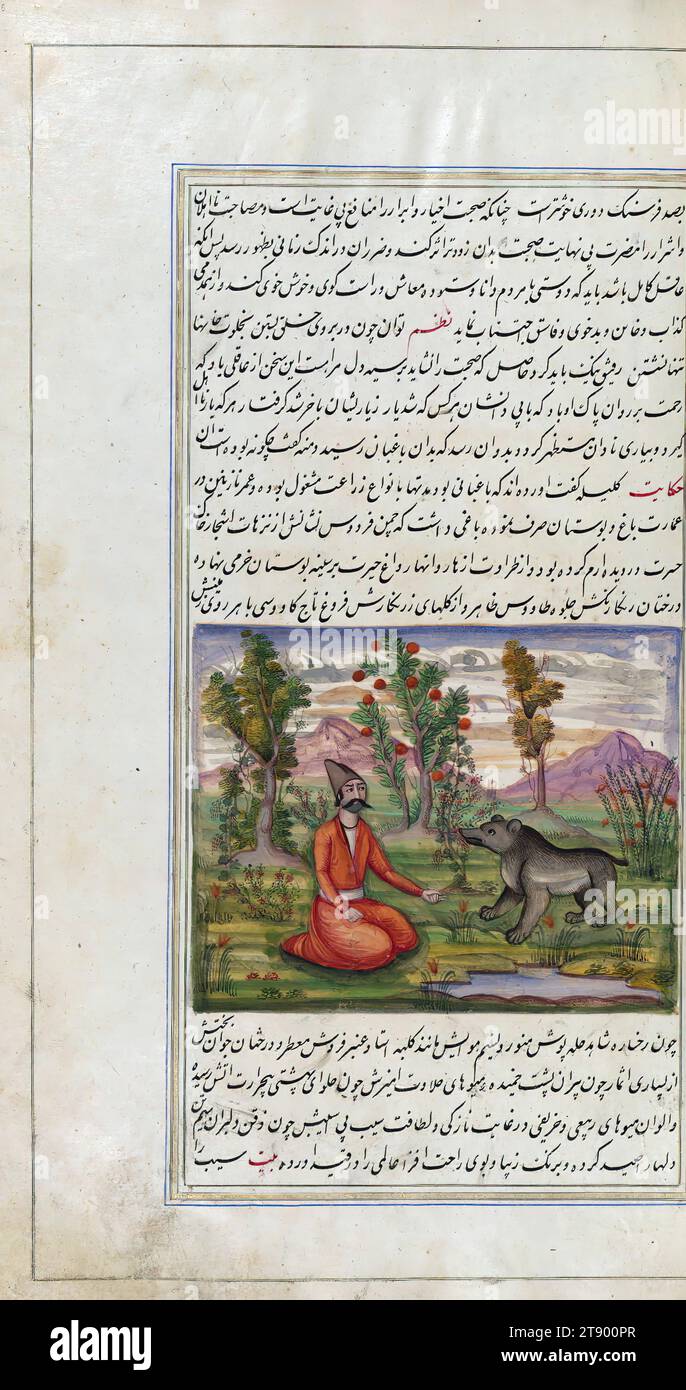 بصد فرسنگ دوری خوشترست چنانکه صحبت اخیار و ابرار را منافع بی غایت است و مصاحبت نا اهلان
و اشرار را مضرت بی نهایت صحبت بدان زودتر اثر کند و ضرر آن در اندک زمانی بظهور رسد پس آنکه
عاقل کامل باشد باید که دوستی با مردم دانا و ستوده معاش و راست کوی و خوش خوی کند و از همدمی
کذاب و خاین و بدخوی و فاسق اجتناب نماید نظم توان چون در بروی خلق بستن بخلوت خانها
تنها نشستن رفیق نیک باید کرد حاصل که صحبت را نشاید
رحمت بر روان پاک او باد که با بی دانشان هرکس که شد یار زیارتشان باخر شد گرفتار هر که یار نا اهل
کیرد و بیاری نادان مستظهر کردد بدو آن رسد که بدان باغبان رسید دمنه گفت چگونه بوده است آن
حکایت کلیله گفت اورده اند که باغبانی بود مدتها بانواع زراعت مشغول بوده و عمر نازنین در
عمارت باغ و بوستان صرف نموده باغی داشت که چمن فردوس نشانش از نزهت اشجار خاک
حسرت در دیده ارم کرده بود و از طراوت ازهار و انهار داغ حیرت بر سینه بوستان خرمی نهاده
درختان رنگارنگش جلوه طاووس ظاهر و از گلهای زرنگارش فروغ تاج کاووسی باهر روی زمینش
چون رخساره شاهد حله پوش منور و نسیم هوایش مانند کلبه استاد عنبر فروش معطر و درختان جوان بختش
از بسیاری اثمار چون پیران پشت خمیده و میوهای حلاوت امیزش چون حلوای بهشتی بیحرارت آتش رسیده
و الوان میوهای ربیعی و خریفی در غایت نازکی و لطافت سیب بی آسیبش چون ذقن دلبران سیمتن
دلها را صید کرده و برنک زیبا و بوی راحت افزا عالمی را در قید اورده بیت سیب را
alamy
alamy
Image ID: 2T900PR
www.alamy.com